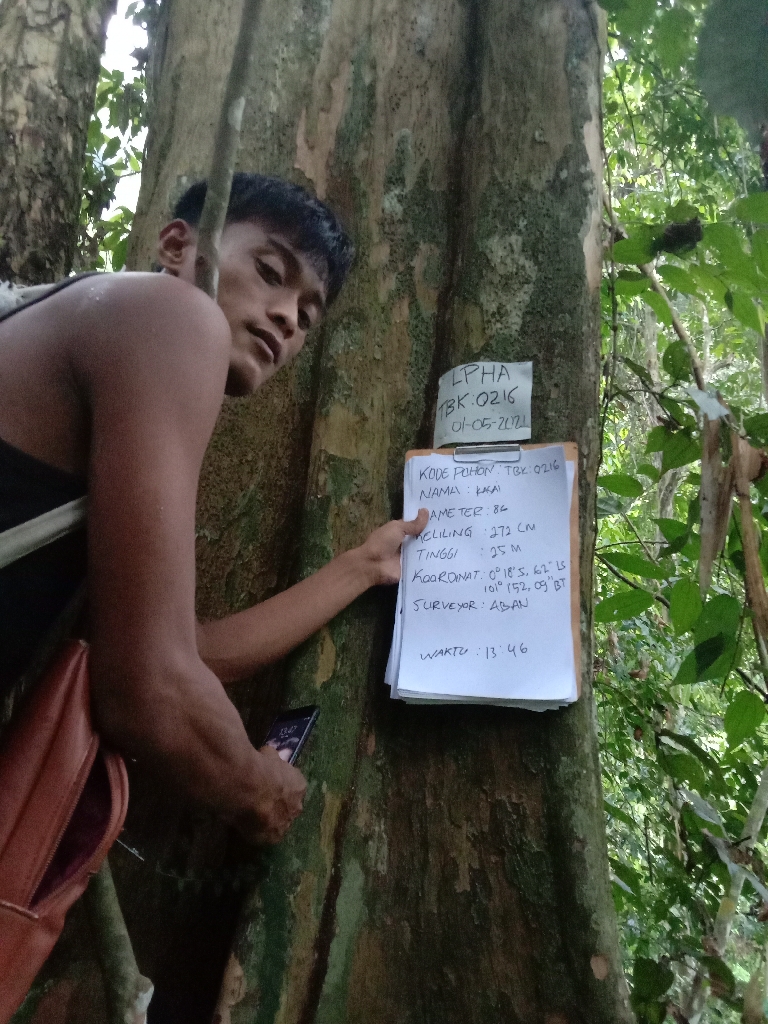 LPHA
TBK:0216
01-05-2021
KODE POHON : TBK:0216
NAMA : KAAI
AMETER : 86
KELILING : 272 CM
TINGGI : 25 M
KOORDINAT : 0° 18' 5, 62" LS
101° 1'52, 09" BT
SURVEYOR : ABAN
WAKTU : 13:46